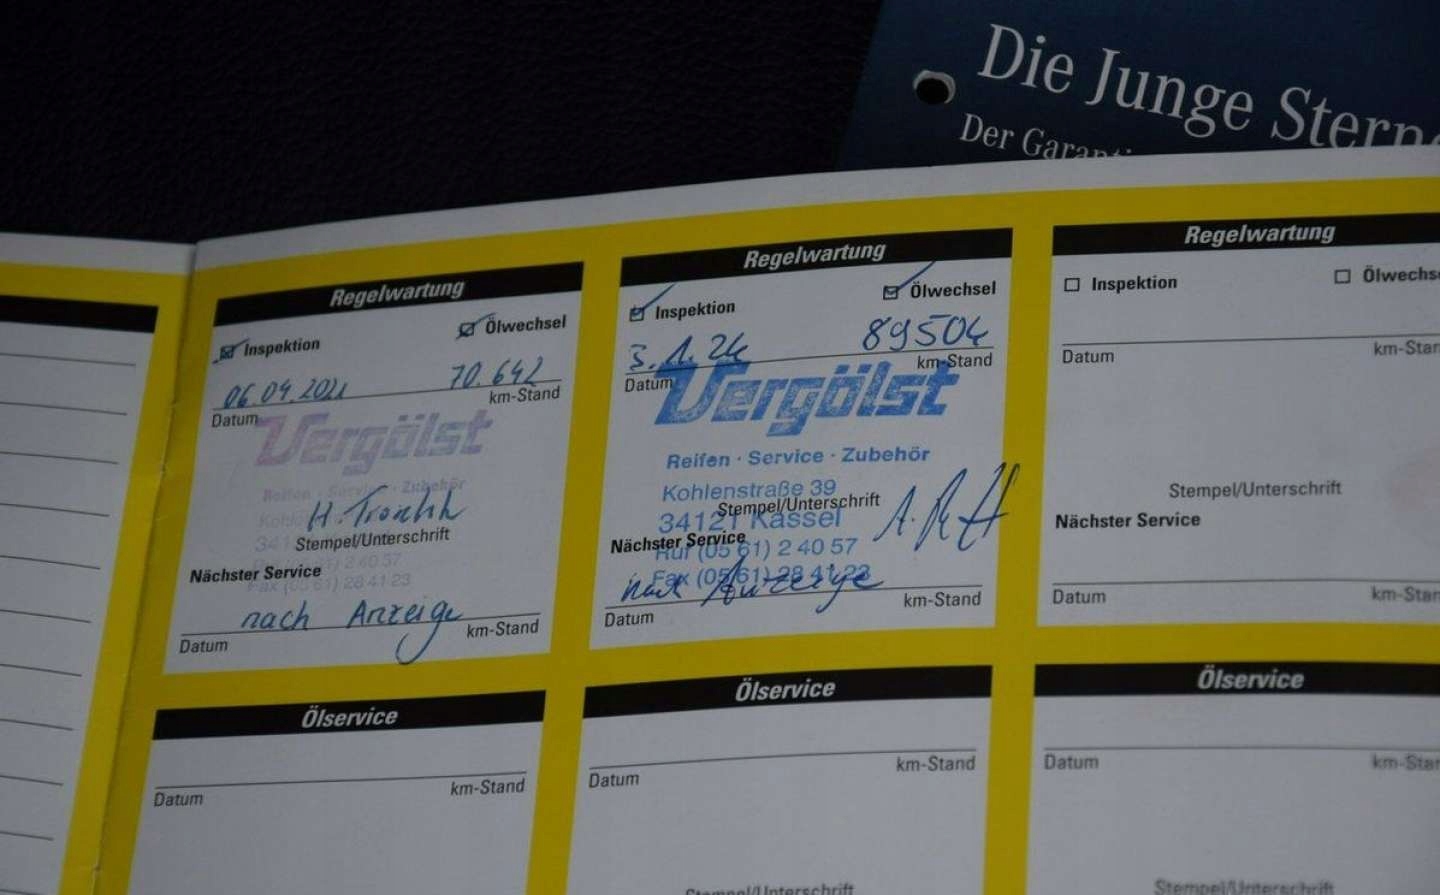 Die Junge Stern
Der Garanti
Regelwartung
Inspektion Ölwechsel
06.04.2021 70.642
Datum km-Stand
Vergölst
Reifen · Service · Zubehör
Stempel/Unterschrift
Nächster Service
Fax (05 61) 28 41-23
nach Anzeige
Datum km-Stand
Regelwartung
Inspektion Ölwechsel
3.1.24 89504
Datum km-Stand
Vergölst
Reifen · Service · Zubehör
Kohlenstraße 39
Stempel/Unterschrift
34121 Kassel
Nächster Service
Ruf (05 61) 2 40 57
Fax (05 61) 28 41-23
nach Anzeige
Datum km-Stand
Regelwartung
Inspektion Ölwechse
Datum km-Stan
Stempel/Unterschrift
Nächster Service
Datum km-Stan
Ölservice
Datum km-Stand
Ölservice
Datum km-Stand
Stempel/Unterschrift
Ölservice
Datum km-Stan
Stempel/Unterschrift